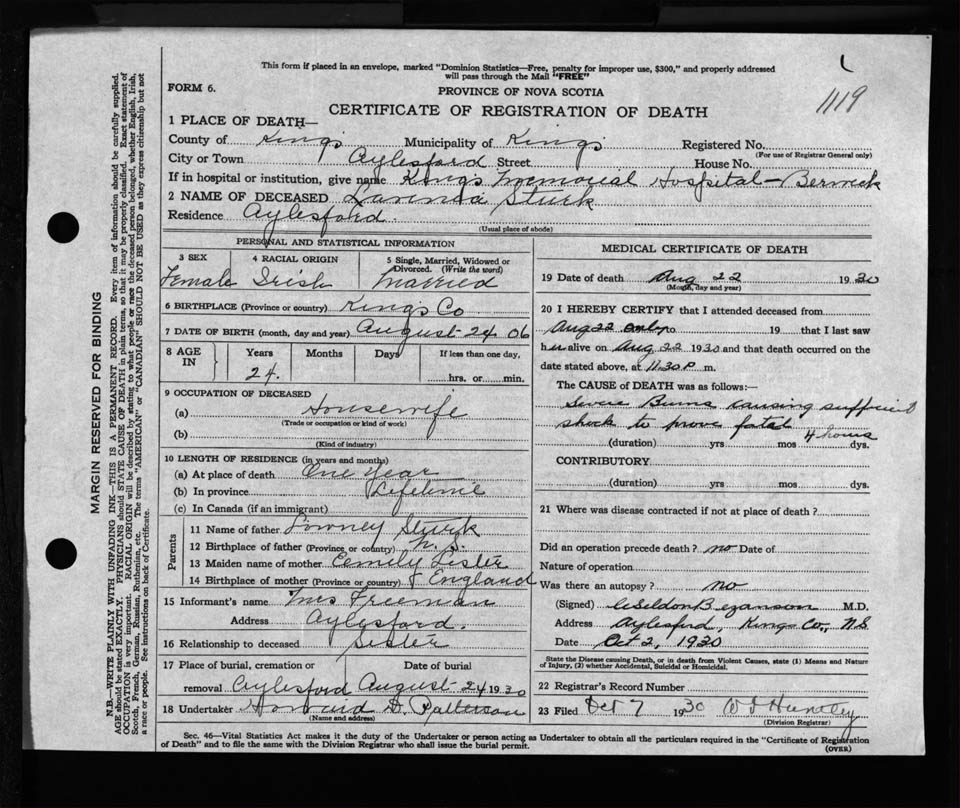 This form if placed in an envelope, marked "Dominion Statistics—Free, penalty for improper use, $300," and properly addressed
will pass through the Mail "FREE"
1119
FORM 6.
PROVINCE OF NOVA SCOTIA
CERTIFICATE OF REGISTRATION OF DEATH
1 PLACE OF DEATH—
County of King's Municipality of King's Registered No.
(For use of Registrar General only)
City or Town Aylesford Street House No.
If in hospital or institution, give name Kings Memorial Hospital—Berwick
2 NAME OF DECEASED Sturk
Residence Aylesford.
(Usual place of abode)
PERSONAL AND STATISTICAL INFORMATION
3 SEX 4 RACIAL ORIGIN 5 Single, Married, Widowed or Divorced. (Write the word)
Female Irish Married
6 BIRTHPLACE (Province or country) King's Co
7 DATE OF BIRTH (month, day and year) August 24 06
8 AGE IN Years Months Days If less than one day,
24. hrs. or min.
9 OCCUPATION OF DECEASED
(a) Housewife
(Trade or occupation or kind of work)
(b)
(Kind of industry)
10 LENGTH OF RESIDENCE (in years and months)
(a) At place of death One Year
(b) In province Lifetime
(c) In Canada (if an immigrant)
Parents
11 Name of father Sturk
12 Birthplace of father (Province or country) N. S.
13 Maiden name of mother Emily Lester
14 Birthplace of mother (Province or country) England
15 Informant's name Mrs Freeman
Address Aylesford.
16 Relationship to deceased Sister
17 Place of burial, cremation or Date of burial
removal Aylesford August 24 1930
18 Undertaker Howard D. Patterson
(Name and address)
MEDICAL CERTIFICATE OF DEATH
19 Date of death Aug 22 1930
(Month, day and year)
20 I HEREBY CERTIFY that I attended deceased from
Aug 22 only to 19 that I last saw
her alive on Aug 22 1930 and that death occurred on the
date stated above, at 11.30 P. m.
The CAUSE OF DEATH was as follows:—
Severe Burns causing sufficient
shock to prove fatal 4 hours
(duration) yrs mos dys.
CONTRIBUTORY
(duration) yrs mos dys.
21 Where was disease contracted if not at place of death?
Did an operation precede death? no Date of
Nature of operation
Was there an autopsy? no
(Signed) Bezanson M.D.
Address Aylesford, Kings Co., N.S
Date Oct 2, 1930
State the Disease causing Death, or in death from Violent Causes, state (1) Means and Nature
of Injury, (2) whether Accidental, Suicidal or Homicidal.
22 Registrar's Record Number
23 Filed Oct 7 1930 Huntley
(Division Registrar)
Sec. 46—Vital Statistics Act makes it the duty of the Undertaker or person acting as Undertaker to obtain all the particulars required in the "Certificate of Registration
of Death" and to file the same with the Division Registrar who shall issue the burial permit.
(OVER)
MARGIN RESERVED FOR BINDING
N.B.—WRITE PLAINLY WITH UNFADING INK—THIS IS A PERMANENT RECORD. Every item of information should be carefully supplied.
AGE should be stated EXACTLY. PHYSICIANS should STATE CAUSE OF DEATH in plain terms, so that it may be properly classified. Exact statement of
OCCUPATION is very important. RACIAL ORIGIN will be described by stating to what people or race the deceased person belonged, whether English, Irish,
Scotch, French, German, Russian, Ruthenian, etc. The terms "AMERICAN" or "CANADIAN" SHOULD NOT BE USED as they express citizenship but not
a race or people. See instructions on back of Certificate.